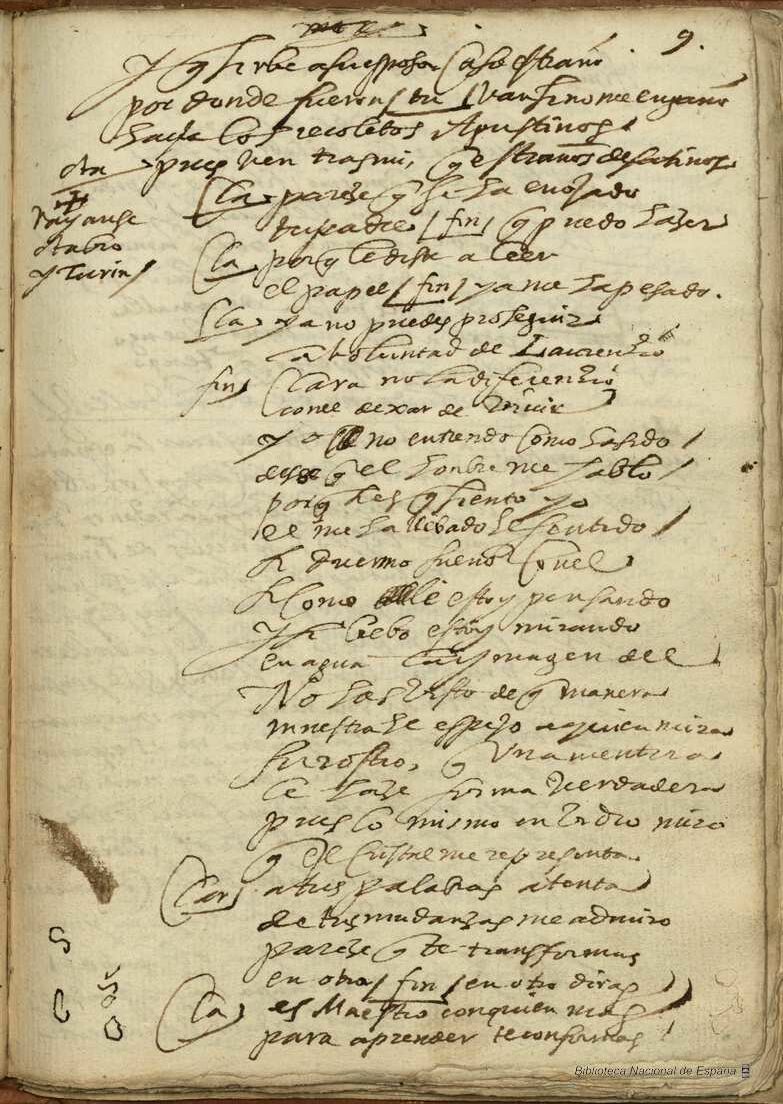 9.
y q sirbe a su esposa Caso estraño
por donde fueron / tu / Van si no me engaño
hazia los recoletos Agustinos
ota pues ven tras mi, q estraños desatinos
Vayanse
otabio
y Turin /
Cla pareze q se ha enojado
tu padre / fin / q puedo hazer
Cla porq le diste a leer
el papel / fin / ya me ha pesado.
Cla ya no puedes proseguir
la boluntad de Laurenzio
fin Clara no la diferenzio
con el dexar de vivir
yo no entiendo como ha sido /
desde q el honbre me hablo /
porq si es q siento yo
el me ha llebado el sentido /
si duermo sueño con el
si como le estoy pensando
y si bebo estoy mirando
en agua la ymagen del
No has visto de q manera
muestra el espejo a quien mira
su rostro, q Una mentira
le haze forma verdadera
pues lo mismo en vidro miro
q el cristal me representa
Clar a tus palabras atenta
de tus mudanzas me admiro
pareze q te transformas
en otra / fin / en otro diras
Cla es Maestro con quien mas
para aprender te conformas
Biblioteca Nacional de España